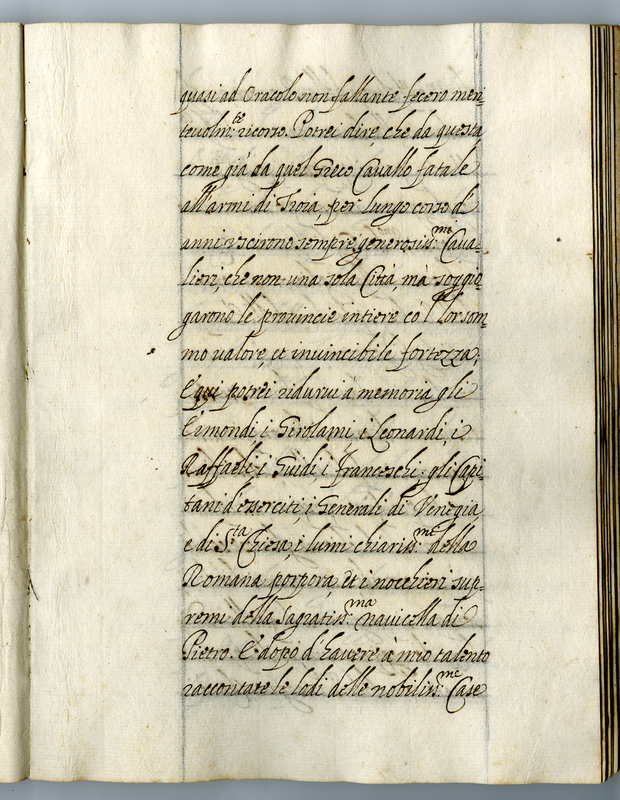 quasi ad Oracolo non fallante fecero men=
teuolm:te ricorso. Potrei dire, che da questa
come già da quel Greco Cauallo fatale
all'armi di Troia, per lungo corso d'
anni vscirono sempre generosiss:mi Caua=
lieri, che non una sola Città, mà soggio
garono le prouincie intiere col lor som=
mo valore, et inuincibile fortezza;
E qui potrei ridurui a memoria gli
i Girolami, i Leonardi, i
Raffaeli, i Guidi, i Franceschi, gli Capi=
tani d'esserciti, i Generali di Venezia,
e di S:ta Chiesa, i lumi chiariss:mi della
Romana porpora, et i nocchieri sup=
remi della sagratiss:ma nauicella di
Pietro. E dopo d'hauere à mio talento
raccontate le lodi delle nobiliss:me Case